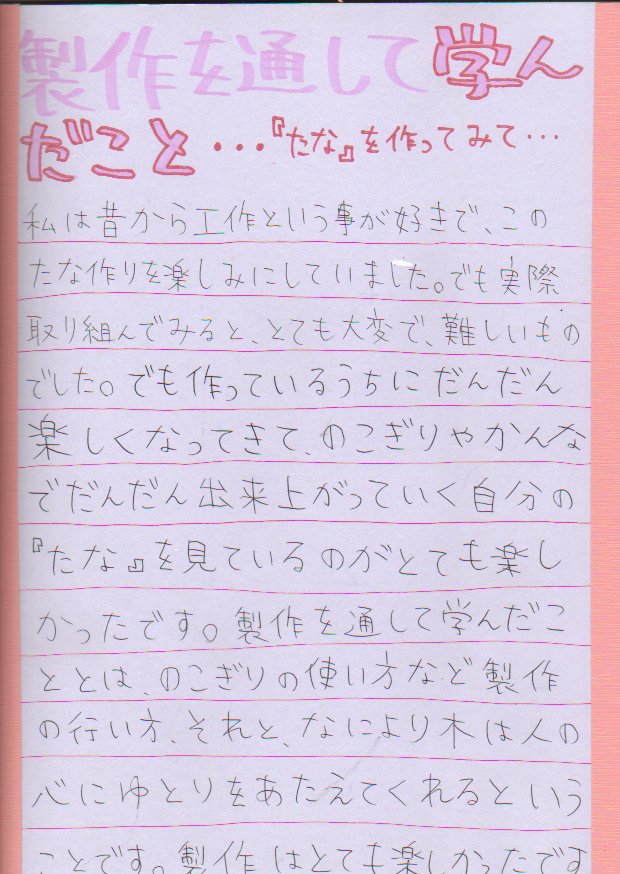 製作を通して学ん
だこと・・・『たな』を作ってみて・・・
私は昔から工作という事が好きで、この
たな作りを楽しみにしていました。でも実際
取り組んでみると、とても大変で、難しいもの
でした。でも作っているうちにだんだん
楽しくなってきて、のこぎりやかんな
でだんだん出来上がっていく自分の
『たな』を見ているのがとても楽し
かったです。製作を通して学んだこ
ととは、のこぎりの使い方など製作
の行い方、それと、なにより木は人の
心にゆとりをあたえてくれるという
ことです。製作はとても楽しかったです